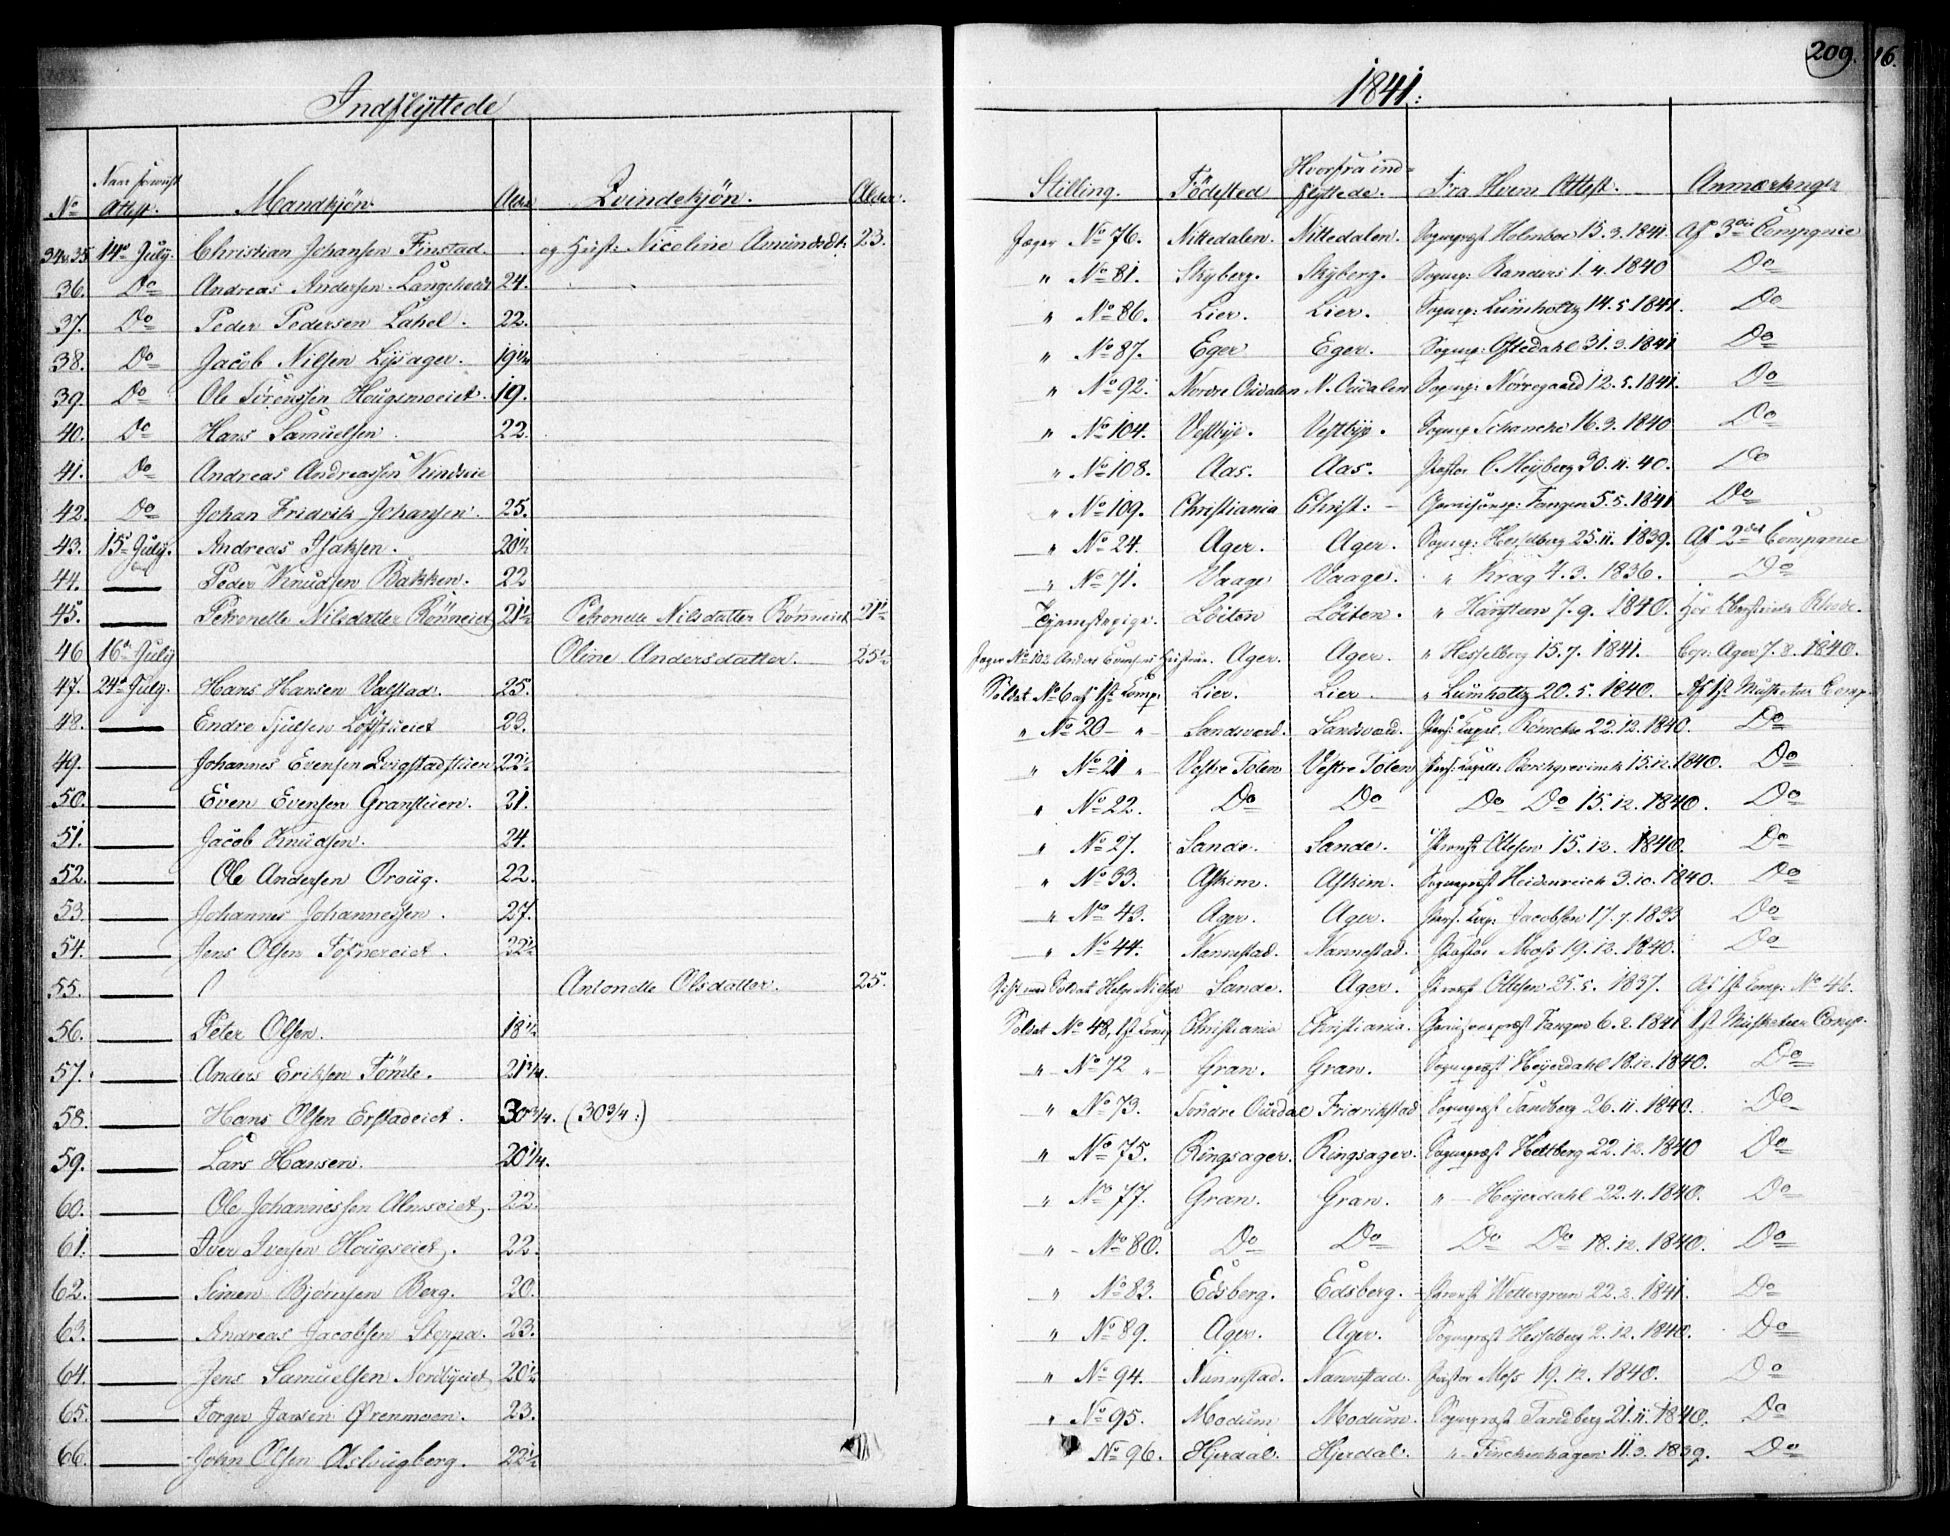 209.
16.
Indflyttede
1841:
No Naar forevist Attest. Mandkjön Alder Qvindekjön. Alder. Stilling. Födested Hvorfra indflyttede. Fra Hvem Attest. Anmærkninger
34 & 35 14de July. Christian Johansen Finstad. og Hust: Nicoline Amundsdt. 23. Jæger No 76. Nittedalen. Nittedalen. Sognepræst Holmboe 15.3.1841. Af 3die Compagnie
36. Do Andreas Andersen Langeholdt 24. " No 81. Skyberg. Skyberg. Sognep: Randers 1.4.1840 Do
37. Do Peder Pedersen Lahel. 22. " No 86. Lier. Lier. Sognep: Lumholtz 14.5.1841. Do
38. Do Jacob Nilsen Lysager. 19 1/4 " No 87. Eger Eger. Sognep: Oftedahl 31.3.1841 Do
39. Do Ole Sörenssen Hougsmoeiet. 19. " No 92. Nordre Oudalen N. Oudalen Sognep: Nörregaard 12.5.1841. Do
40. Do Hans Samuelsen. 22. " No 104. Vestbye. Vestbye. Sognep Schanche 16.3.1840 Do
41. Do Andreas Andreassen " No 108. Aas. Aas. Pastor C. Heyberg 30.11.40. Do
42. Do Johan Fridrik Johansen. 25. " No 109. Christiania Christ: - Garnisonsp: Fangen 5.5.1841 Do
43. 15de July. Andreas Isaksen. 20 1/2 " No 24. Ager. Ager. Sognep: Hesselberg 25.11.1839. Af 2det Compagnie
44. Peder Knudsen Bakken. 22 " No 71. Vaage Vaage. " Krag 4.3.1836. Do
45. Petronelle Nilsdatter Rönneiet 21 1/2 Petronelle Nilsdatter Rönneiet 21 1/2 Tjenestepige. Löiten Löiten. " Hansteen 7.9.1840. Hos Rhode.
46 16de July Oline Andersdatter. 25 1/2 Jæger No 102 Anders Evensens Hustrue. Ager. Ager. " Hesselberg 15.7.1841. Cop. Ager 7.8.1840.
47. 24de July. Hans Hansen Valstad. 25. Soldat No 6 af 1st Comp: Lier. Lier " Lumholtz 20.5.1840. Af 1st Musketeer Comp.
48. Endre Tjulsen 23. " No 20 - " - Sandsværd. Sandsværd. Pers: Capel. Römcke 22.12.1840. Do
49. Johannes Evensen Qvigstadstuen 22 1/2 " No 21 " Vestre Toten Vestre Toten Pers: Capell. Borchgrevinck 15.12.1840. Do
50. Even Evensen Granstuen. 21. " No 22. Do Do Do Do 15.12.1840. Do
51. Jacob Knudsen. 24. " No 27. Sande. Sande. Provst Ottesen 15.12.1840. Do
52. Ole Andersen Oraug. 22. " No 33. Askim. Askim. Sognepræst Heidenreich 3.10.1840. Do
53. Johannes Johannessen. 27. " No 43. Ager. Ager. Pers. Cap: Jacobsen 17.7.1833 Do
54. Jens Olsen Tofsnereiet. 22 1/2 " No 44. Nannestad. Nannestad. Pastor Moss 19.12.1840. Do
55. Antonette Olsdatter. 25. Gift med Soldat Helge Nielsen Sande. Ager. Provst Ottesen 25.5.1837. Af 1st Comp: No 46.
56. Peter Olsen. 18 1/2 Soldat No 48, 1st Comp Christiania Christiania. Garnisonspræst Fangen 6.2.1841 1st Musketeer Comp.
57. Anders Eriksen Tömte. 21 3/4. " - No 72 " - Gran. Gran. Sognepræst Heyerdahl 18.12.1840. Do
58. Hans Olsen Erstadeiet. 30 3/4. (30 3/4:) " No 73. Söndre Ourdal Fridrikstad Sognepræst Tandberg 26.11.1840. Do
59. Lars Hansen. 20 1/4. " No 75. Ringsager. Ringsager. Sognepræst Heltberg 22.12.1840 Do
60. Ole Johannessen Almseiet. 22. " No 77. Gran. Gran. " - Heyerdahl 22.4.1840. Do
61. Iver Iversen Hougseiet. 22. " - No 80. Do Do Do Do 18.12.1840. Do
62. Simen Björnsen Berg. 20. " No 83. Edsberg. Edsberg. Provst Wettergreen 22.2.1841. Do
63. Andreas Jacobsen Steppa. 23. " No 89. Ager. Ager. Sognepræst Hesselberg 2.12.1840. Do
64. Jens Samuelsen Nordbyeiet 20 1/2 " No 94. Nannestad. Nannestad. Pastor Moss 19.12.1840. Do
65. Torger Jansen Ørenmoen. 23. " No 95. Modum Modum. Sognepræst Tandberg 21.11.1840. Do
66. John Olsen Aslougberg. 22 1/2 No 96. Hjerdal. Hjerdal. " - Finckenhagen 11.3.1839. Do